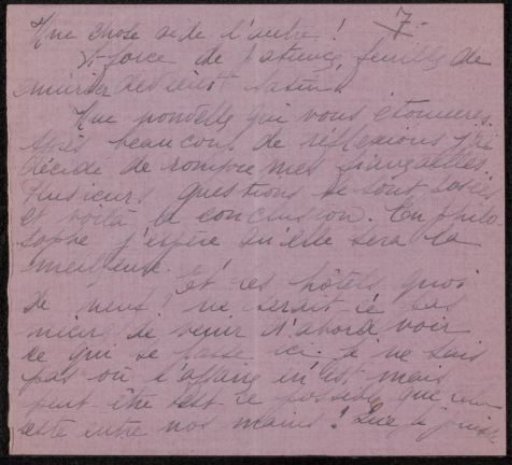 7.
Une chose aide l'autre !
A force de patience, feuille de
mûrier devient satin.
Une nouvelle qui vous étonnera.
Après beaucoup de réflexions j'ai
décidé de rompre mes fiançailles.
Plusieurs questions se sont posées
et voilà la conclusion. En philo-
sophe j'espère qu'elle sera la
meilleure.
Et ces hôtels quoi
de neuf ! ne serait ce pas
mieux de venir d'abord voir
ce qui se passe ici. Je ne sais
pas où l'affaire en est, mais
peut être est ce possible que
reste entre nos mains ! Que je